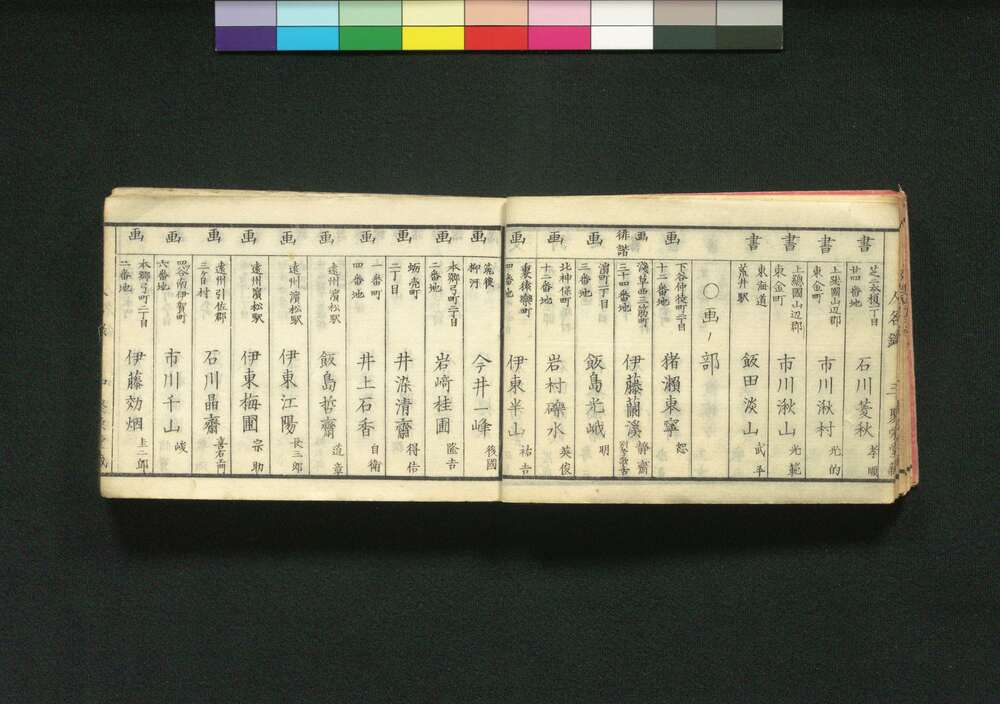 書
芝西久保
廿四番地
石川菱秋
孝順
書
上総國山辺郡
東金町
市川湫村
光的
書
上総國山辺郡
東金町
市川湫山
光範
書
東海道
荒井駅
飯田淡山
武平
〇画ノ部
画
下谷仲徒町二丁目
十二番地
猪瀬東寧
恕
俳諧
画
浅草西三筋町
三十四番地
伊藤蘭溪
静齋
画
濱町二丁目
三番地
飯島光峨
明
画
北神保町
十二番地
岩村礫水
英俊
画
裏猿樂町
四番地
伊東半山
祐吉
画
筑後
柳河
今井一峰
後國
画
本郷弓町二丁目
二番地
岩﨑桂圃
隆吉
画
蛎売町
二丁目
井染清齋
得佑
画
一番町
四番地
井上石香
自衛
画
遠州濱松駅
飯島哲齋
道章
画
遠州濱松駅
伊東江陽
長三郎
画
遠州濱松駅
伊東梅圃
宗助
画
遠州引佐郡
三ケ日村
石川晶齋
喜右エ門
画
四谷南伊賀町
六番地
市川千山
峻
画
本郷弓町二丁目
二番地
伊藤効烟
圭二郎